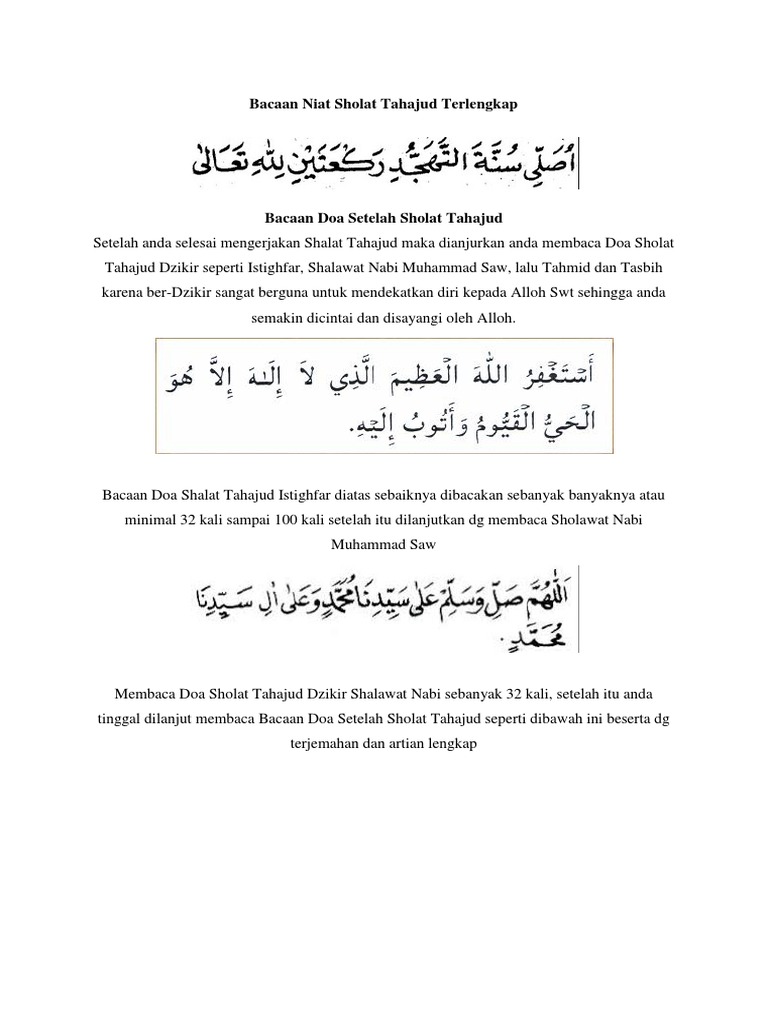 Bacaan Niat Sholat Tahajud Terlengkap
اُصَلِّى سُنَّةَ التَّهَجُّدِ رَكْعَتَيْنِ لِلّٰهِ تَعَالٰى
Bacaan Doa Setelah Sholat Tahajud
Setelah anda selesai mengerjakan Shalat Tahajud maka dianjurkan anda membaca Doa Sholat
Tahajud Dzikir seperti Istighfar, Shalawat Nabi Muhammad Saw, lalu Tahmid dan Tasbih
karena ber-Dzikir sangat berguna untuk mendekatkan diri kepada Alloh Swt sehingga anda
semakin dicintai dan disayangi oleh Alloh.
أَسْتَغْفِرُ اللهَ الْعَظِيمَ الَّذِي لاَ إِلَـٰهَ إِلاَّ هُوَ
الْحَيُّ الْقَيُّومُ وَأَتُوبُ إِلَيْهِ.
Bacaan Doa Shalat Tahajud Istighfar diatas sebaiknya dibacakan sebanyak banyaknya atau
minimal 32 kali sampai 100 kali setelah itu dilanjutkan dg membaca Sholawat Nabi
Muhammad Saw
اَللّٰهُمَّ صَلِّ وَسَلِّمْ عَلٰى سَيِّدِنَا مُحَمَّدٍ وَعَلٰى اٰلِ سَيِّدِنَا
مُحَمَّدٍ.
Membaca Doa Sholat Tahajud Dzikir Shalawat Nabi sebanyak 32 kali, setelah itu anda
tinggal dilanjut membaca Bacaan Doa Setelah Sholat Tahajud seperti dibawah ini beserta dg
terjemahan dan artian lengkap